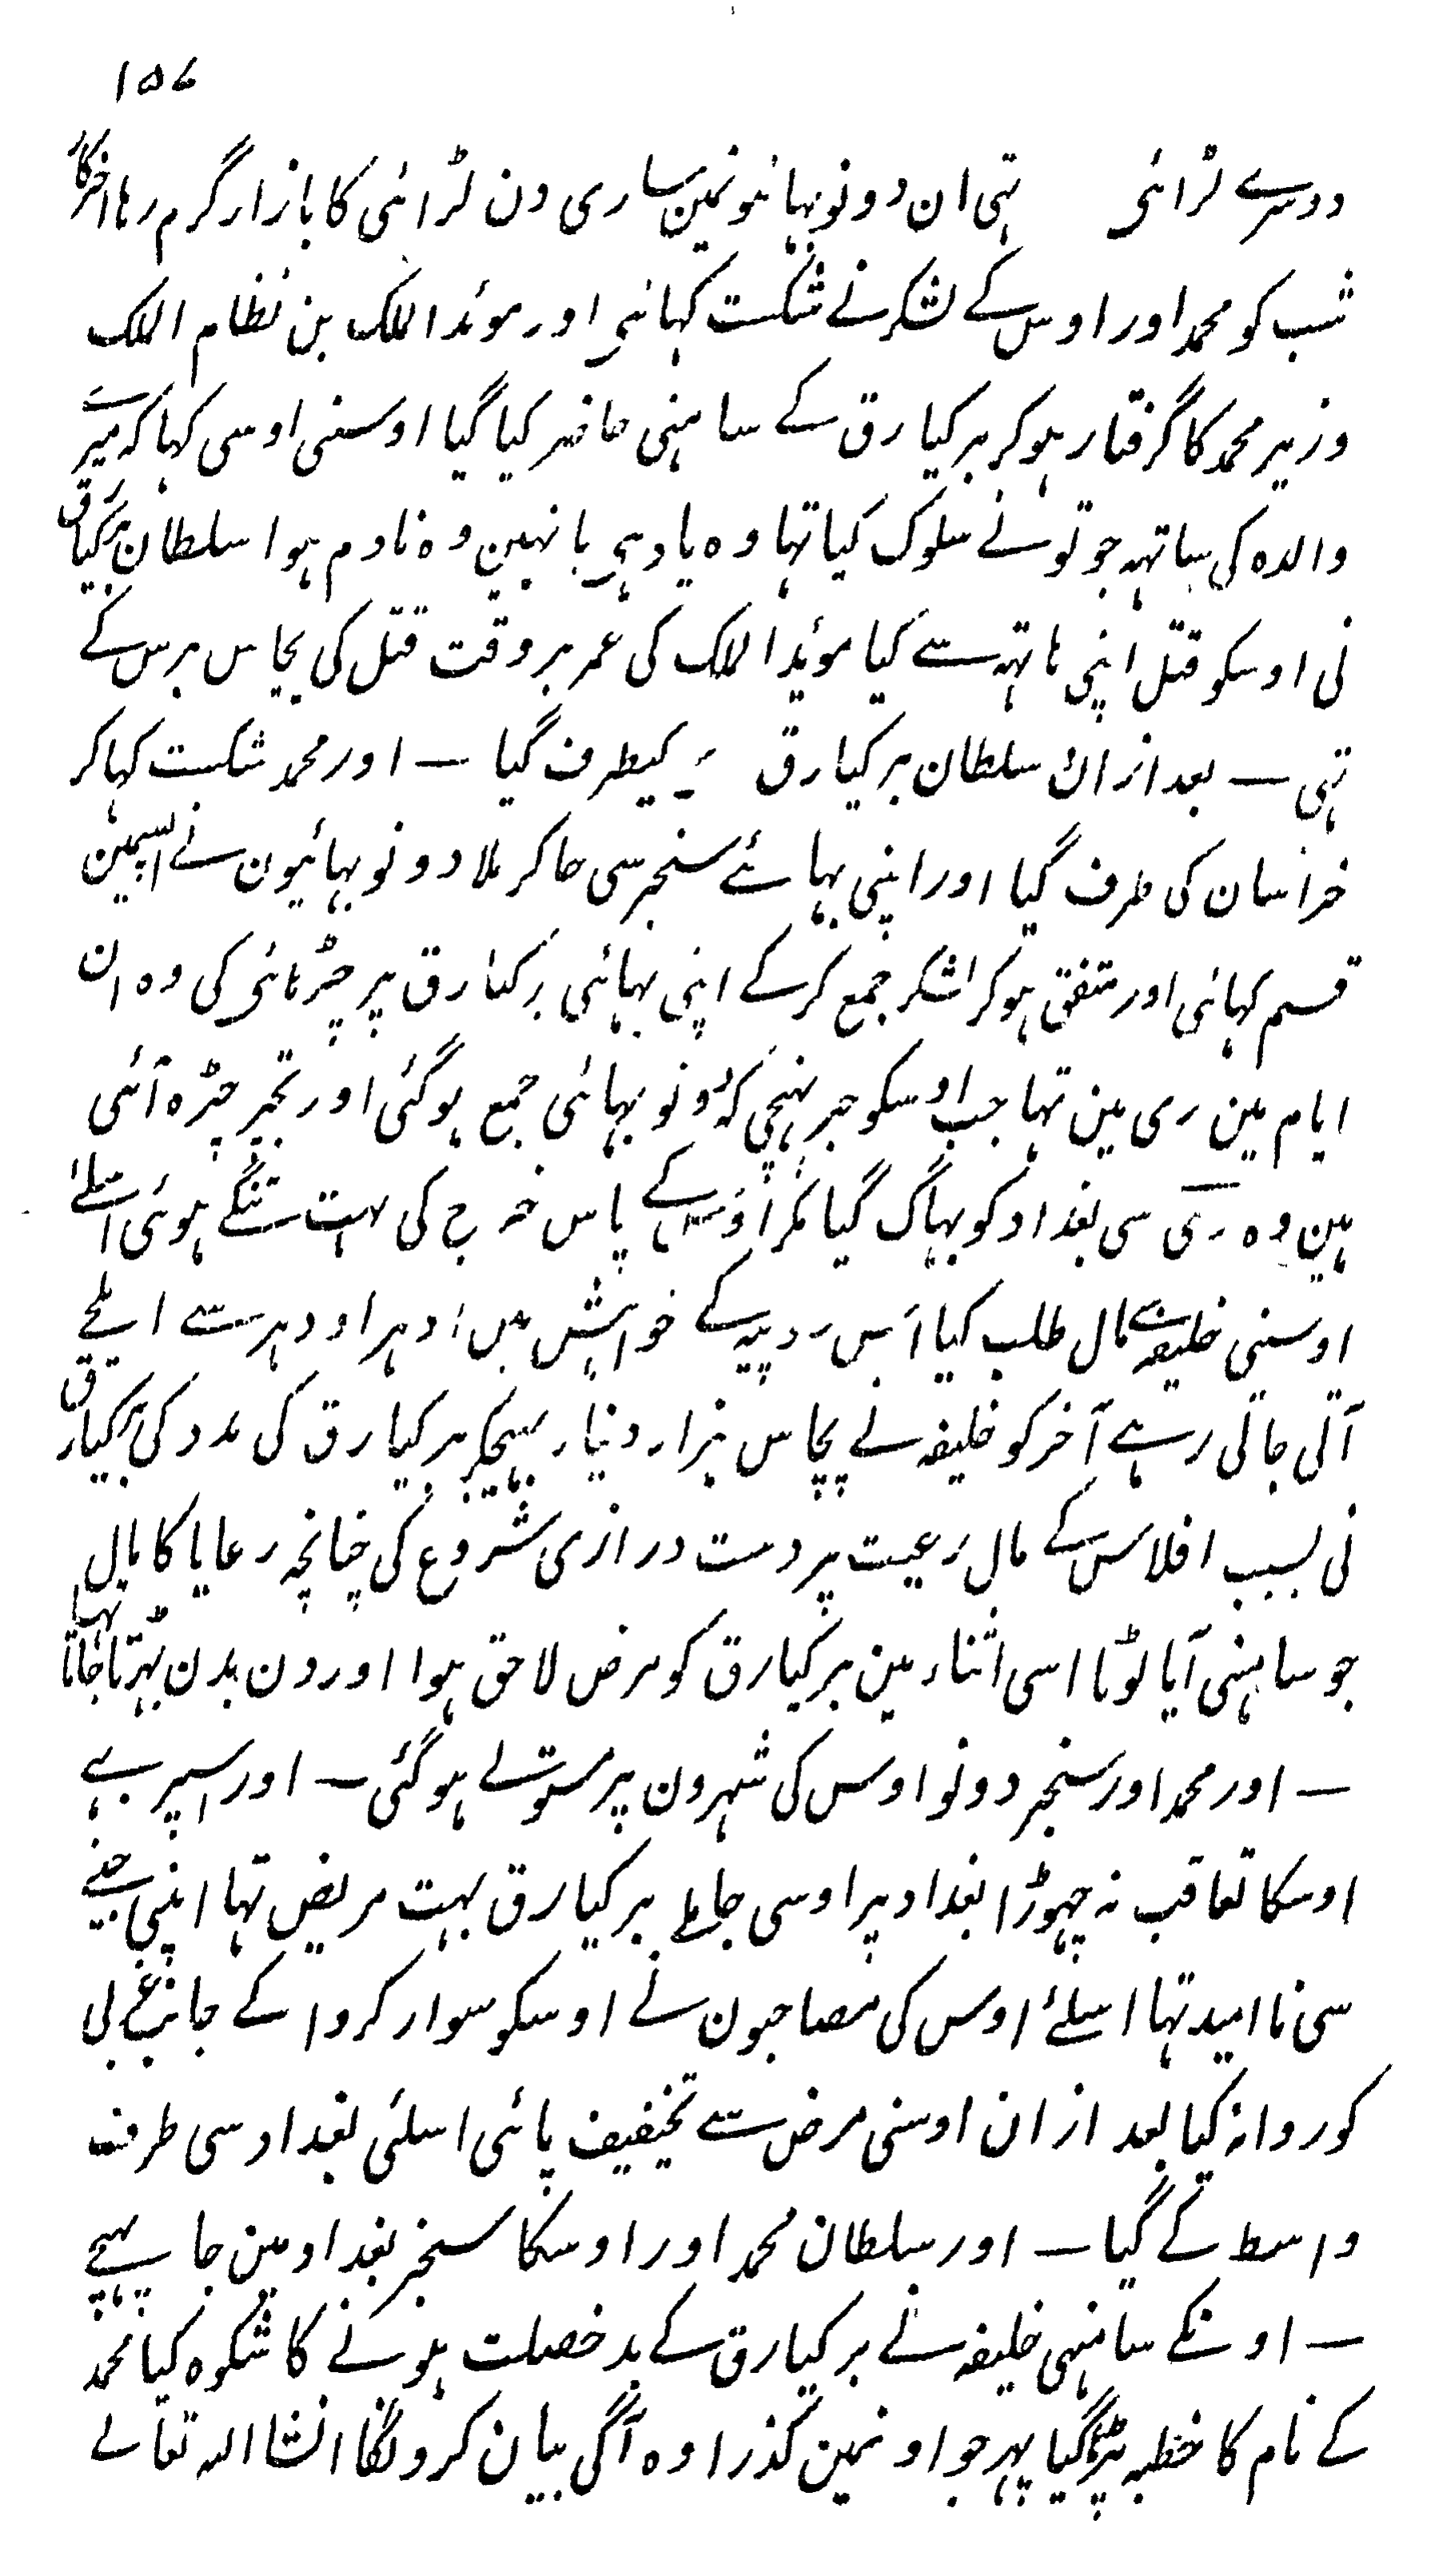 ۱۵۷
دوسرے لڑائی تہی ان دونو بہائیونمین ساری دن لڑائی کا بازار گرم رہا آخرکار
شب کو محمد اور اوس کے لشکر نے شکست کہائی اور موئد الملک بن نظام الملک
وزیر محمد کا گرفتار ہوکر برکیارق کے سامنی حاضر کیا گیا اوسنی اوسی کہا کہ میرے
والدہ کی ساتہہ جو تو نے سلوک کیا تہا وہ یاد ہی یا نہین وہ نادم ہوا سلطان برکیارق
نی اوسکو قتل اپنی ہاتہہ سے کیا موید الملک کی عمر بروقت قتل کی پچاس برس کے
تہی — بعد ازان سلطان برکیارق رے کیطرف گیا — اور محمد شکست کہا کر
خراسان کی طرف گیا اور اپنی بہائے سنجر سی جا کر ملا دونو بہائیون نے اسپمین
قسم کہائی اور متفق ہوکر لشکر جمع کر کے اپنی بہائی برکیارق پر چڑہائی کی وہ ان
ایام مین ری مین تہا جب اوسکو خبر پہنچی کہ دونو بہائی جمع ہوگئی اور تجپر چڑہ آئی
ہین وہ رَی سی بغداد کو بہاگ گیا مگر اوس کے پاس خرج کی بہت تنگے ہوئی اسلئے
اوسنی خلیفہ سے مال طلب کیا اس روپیہ کے خواہش مین ادہر اودہر سے ایلچے
آتی جاتی رہے آخر کو خلیفہ نے پچاس ہزار دنیار بہیجکر برکیارق کی مدد کی برکیارق
نی بسبب افلاس کے مال رعیت پر دست درازی شروع کی چنانچہ رعایا کا مال
جو سامنی آیا لوٹا اسی اثناء مین برکیارق کو مرض لاحق ہوا اور دن بدن بڑہتا جاتا تہا
— اور محمد اور سنجر دونو اوس کی شہرون پر مستولے ہوگئی — اور اسپر بہے
اوسکا تعاقب نہ چہوڑا بغداد پر اوسی جاملے برکیارق بہت مریض تہا اپنی جینے
سی ناامید تہا اسلئے اوس کی مصاحبون نے اوسکو سوار کروا کے جانب غربی
کو روانہ کیا بعد ازان اوسنی مرض سے تخفیف پائی اسلئی بغداد سی طرف
واسط کے گیا — اور سلطان محمد اور اوسکا سنجر بغداد مین جا پہنچے
— اونکے سامنہی خلیفہ نے برکیارق کے بدخصلت ہونے کا شکوہ کیا محمد
کے نام کا خطبہ پڑہا گیا پہر جو اونمین گذرا وہ آگی بیان کرونگا انشا اللہ تعالے